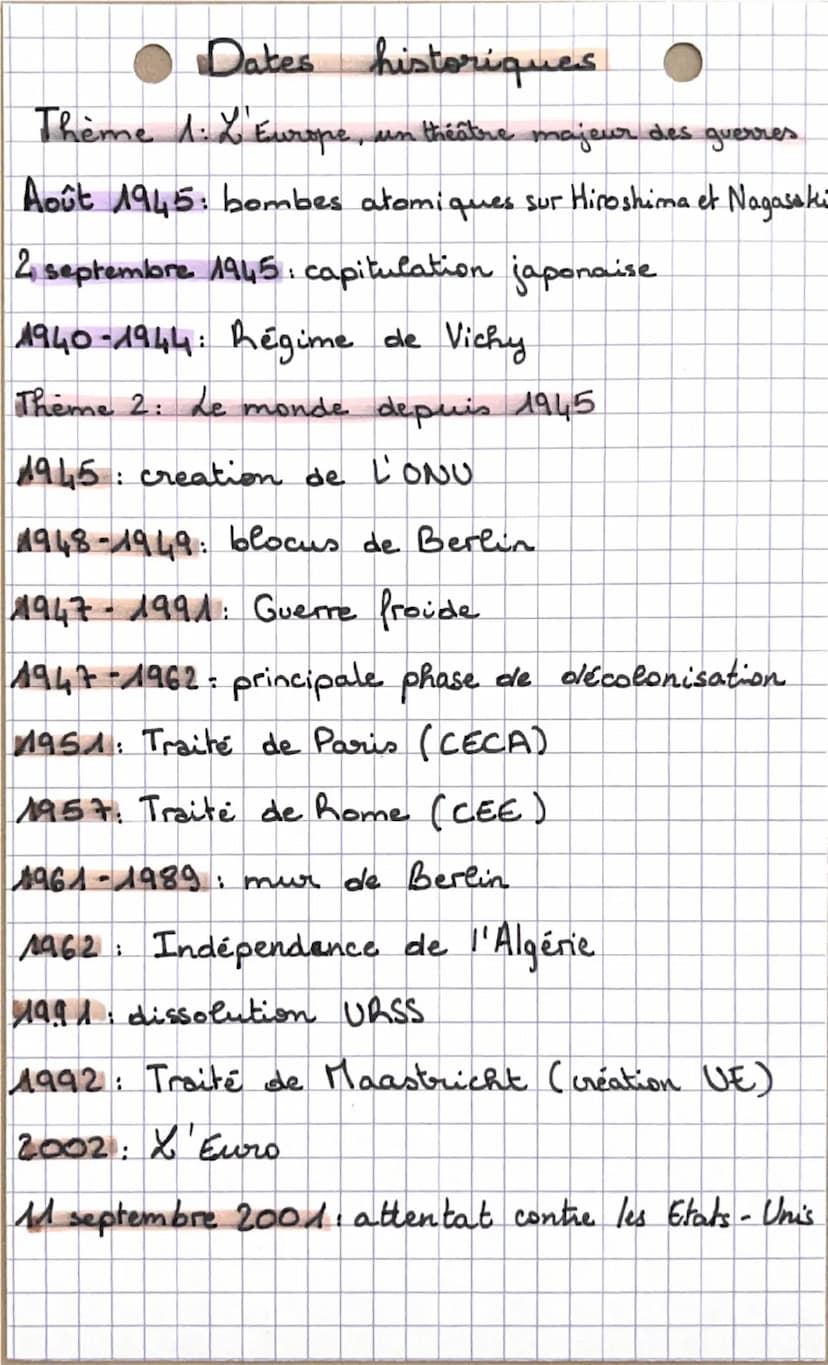 Dates historiques
Thème 1: L'Europe, un théâtre majeur des guerres
Août 1945: bombes atomiques sur Hiroshima et Nagasaki
2 septembre 1945: capitulation japonaise
1940-1944: Régime de Vichy
Thème 2: Le monde depuis 1945
1945: creation de L'ONU
1948-1949: blocus de Berlin
1947-1991: Guerre froide
1947-1962: principale phase de décolonisation
1951: Traité de Paris (CECA)
1957: Traité de Rome (CEE)
1961-1989: mur de Berlin
1962: Indépendance de l'Algérie
1991: dissolution URSS
1992: Traité de Maastricht (création UE)
2002: L'Euro
11 septembre 2001: attentat contre les Etats-Unis